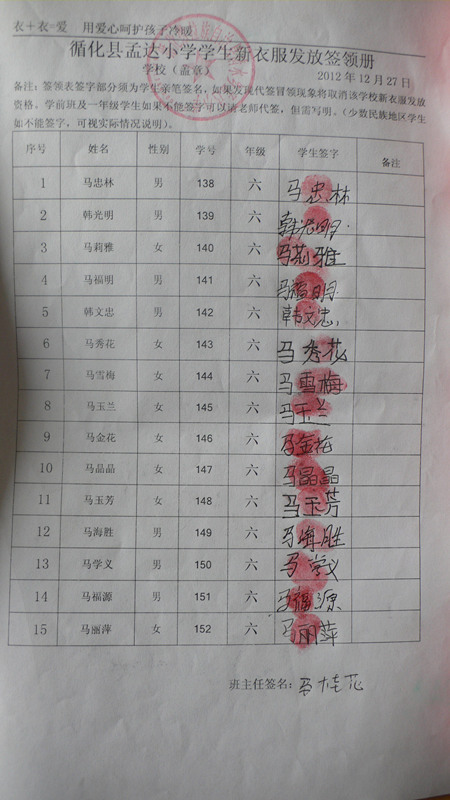 衣+衣=爱 用爱心呵护孩子冷暖
循化县孟达小学学生新衣服发放签领册
学校（盖章） 2012 年 12 月 27 日
备注：签领表签字部分须为学生亲笔签名，如果发现代签冒领现象将取消该学校新衣服发放
资格。学前班及一年级学生如果不能签字可以请老师代签，但需写明。（少数民族地区学生
如不能签字，可视实际情况说明）。
序号 姓名 性别 学号 年级 学生签字 备注
1 马忠林 男 138 六 马忠林
2 韩光明 男 139 六 韩光明.
3 马莉雅 女 140 六 马莉雅
4 马福明 男 141 六 马福明.
5 韩文忠 男 142 六 韩文忠.
6 马秀花 女 143 六 马秀花
7 马雪梅 女 144 六 马雪梅
8 马玉兰 女 145 六 马玉兰
9 马金花 女 146 六 马金花
10 马晶晶 女 147 六 马晶晶
11 马玉芳 女 148 六 马玉芳
12 马海胜 男 149 六 马海胜
13 马学义 男 150 六 马学义
14 马福源 男 151 六 马福源
15 马丽萍 女 152 六 马丽萍
班主任签名：马桂花